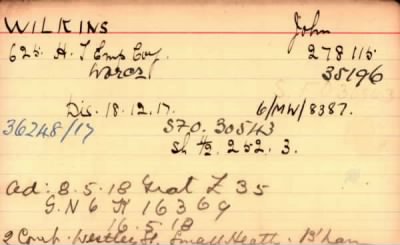 WILKINS John
625. H. S Emp Coy. 278115.
Worcs. 35196
Dis. 18.12.17. 6/MW/8387.
36248/17 S70. 30543
Sh H2. 252. 3.
ad: 8.5.18 Grat £ 35
G.N 6 H 16369
16.5.18
2 Comb. Westley St, Small Heath. B'ham